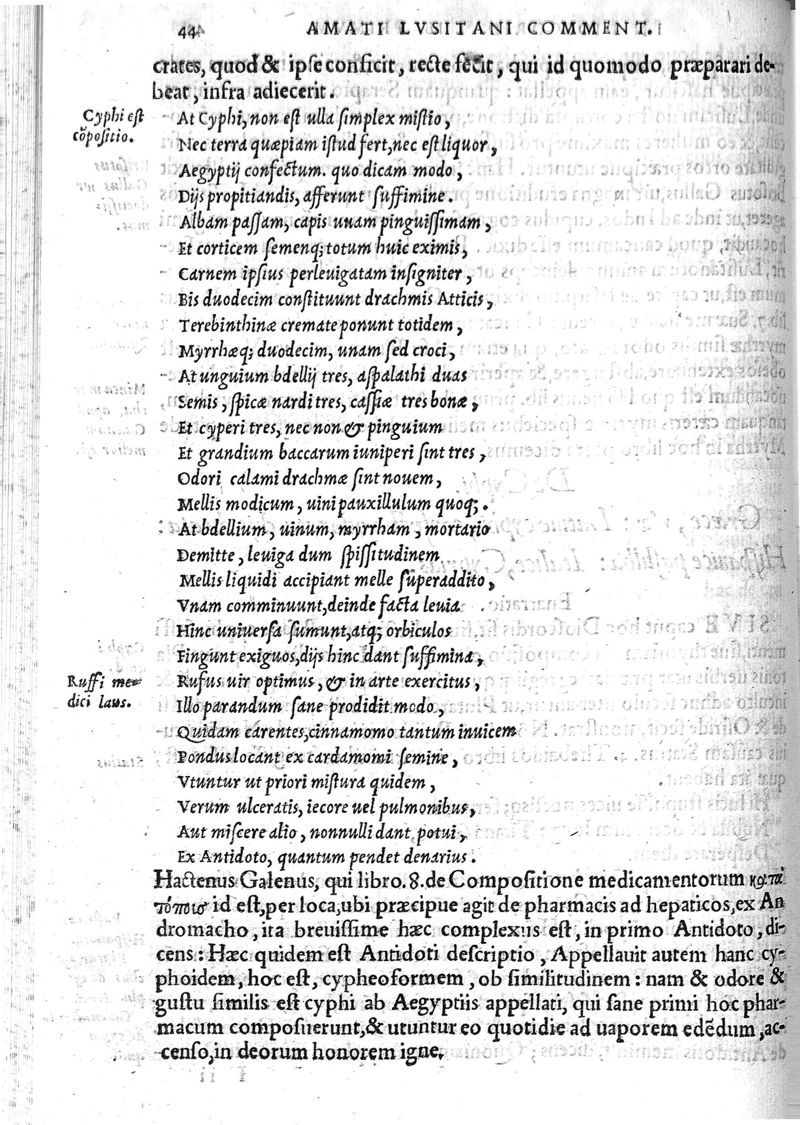 44 AMATI LVSITANI COMMENT.
crates, quod & ipse conficit, recte fecit, qui id quomodo præparari de-
beat, infra adiecerit.
Cyphi est
cōpositio.
At Cyphi, non est ulla simplex mistio,
Nec terra quæpiam istud fert, nec est liquor,
Aegyptij confectum. quo dicam modo,
Dijs propitiandis, afferunt suffimine.
Albam passam, capis unam pinguissimam,
Et corticem semenq; totum huic eximis,
Carnem ipsius perleuigatam insigniter,
Bis duodecim constituunt drachmis Atticis,
Terebinthinæ crematæ ponunt totidem,
Myrrhæq; duodecim, unam sed croci,
At unguium bdellij tres, aspalathi duas
Semis, spicæ nardi tres, cassiæ tres bonæ,
Et cyperi tres, nec non & pinguium
Et grandium baccarum iuniperi sint tres,
Odori calami drachmæ sint nouem,
Mellis modicum, uini pauxillulum quoq;.
At bdellium, uinum, myrrham, mortario
Demitte, leuiga dum spissitudinem
Mellis liquidi accipiant melle superaddito,
Vnam comminuunt, deinde facta leuia
Hinc uniuersa sumunt, atq; orbiculos
Fingunt exiguos, dijs hinc dant suffimina,
Ruffi me-
dici laus.
Rufus uir optimus, & in arte exercitus,
Illo parandum sane prodidit modo,
Quidam carentes, cinnamomo tantum inuicem
Pondus locant ex cardamomi semine,
Vtuntur ut priori mistura quidem,
Verum ulceratis, iecore uel pulmonibus,
Aut miscere alio, nonnulli dant potui,
Ex Antidoto, quantum pendet denarius.
Hactenus Galenus, qui libro. 8. de Compositione medicamentorum κατὰ
τόπους id est, per loca, ubi præcipue agit de pharmacis ad hepaticos, ex An
dromacho, ita breuissime hæc complexus est, in primo Antidoto, di-
cens: Hæc quidem est Antidoti descriptio, Appellauit autem hanc cy-
phoidem, hoc est, cypheoformem, ob similitudinem: nam & odore &
gustu similis est cyphi ab Aegyptiis appellati, qui sane primi hoc phar-
macum composuerunt, & utuntur eo quotidie ad uaporem edēdum, ac-
censo, in deorum honorem igne.